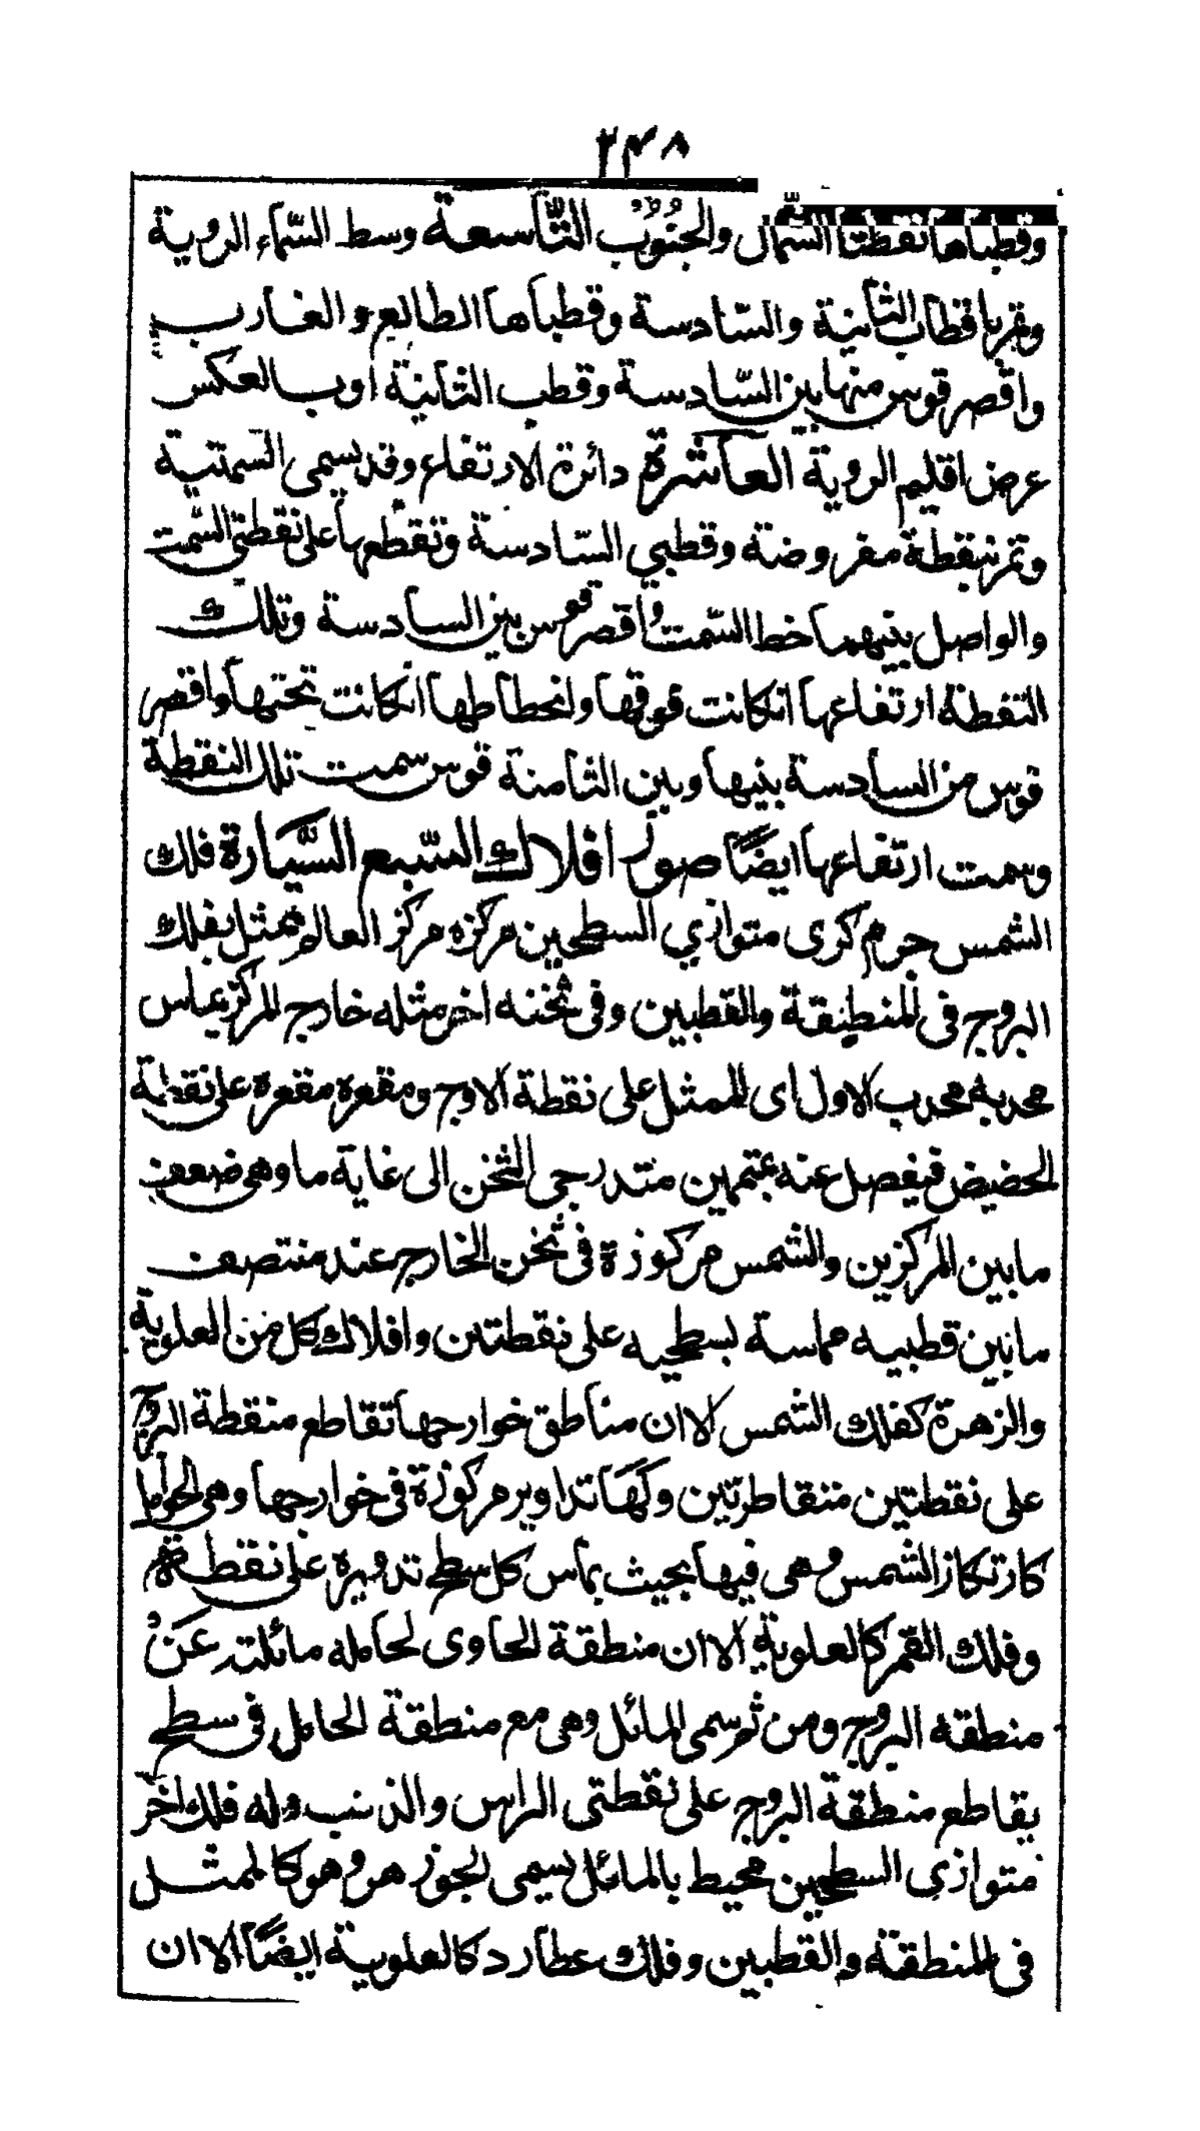 ٢٤٨
وقطباها نقطتا الشمال والجنوب التاسعة وسط السماء الروية
وتمر باقطاب الثانية والسادسة وقطباها الطالع والغارب
واقصر قوس منها بين السادسة وقطب الثانية اوبالعكس
عرض اقليم الروية العاشرة دائرة الارتفاع وقد يسمى السمتية
وتمر بنقطة مفروضة وقطبي السادسة وتقطعها على نقطتي السمت
والواصل بينهما خط السمت واقصر قوس بين السادسة وتلك
النقطة ارتفاعها انكانت فوقها وانحطاطها انكانت تحتها واقصر
قوس من السادسة بينها وبين الثامنة قوس سمت تلك النقطة
وسمت ارتفاعها ايضًا صور افلاك السبع السيارة فلك
الشمس جرم كرى متوازي السطحين مركزه مركز العالم ممثل بفلك
البروج فى المنطقة والقطبين وفى ثخنه اخر مثله خارج المركز يماس
محدبه محدب الاول اى الممثل على نقطة الاوج ومقعره مقعره على نقطة
الحضيض فيفصل عنه بمتممين متدرجى الثخن الى غاية ما وهى ضعف
مابين المركزين والشمس مركوزة فى ثخن الخارج عند منتصف
مابين قطبيه مماسة بسطحيه على نقطتين وافلاك كل من العلوية
والزهرة كفلك الشمس الا ان مناطق خوارجها تقاطع منقطة البروج
على نقطتين متقاطرتين وكهاتداوير مركوزة فى خوارجها وهى الحوامل
كارتكاز الشمس وهى فيها بحيث يماس كل سطح تدويره على نقطة
وفلك القمر كالعلوية الا ان منطقة الحاوى لحامله مائلته عن
منطقه البروج ومن ثم سمى المائل وهى مع منطقة الحامل فى سطح
يقاطع منطقة البروج على نقطتى الراس والذنب وله فلك اخر
متوازي السطحين محيط بالمائل يسمى الجوزهر وهو كالممثل
فى المنطقة والقطبين وفلك عطارد كالعلوية ايضًا الا ان